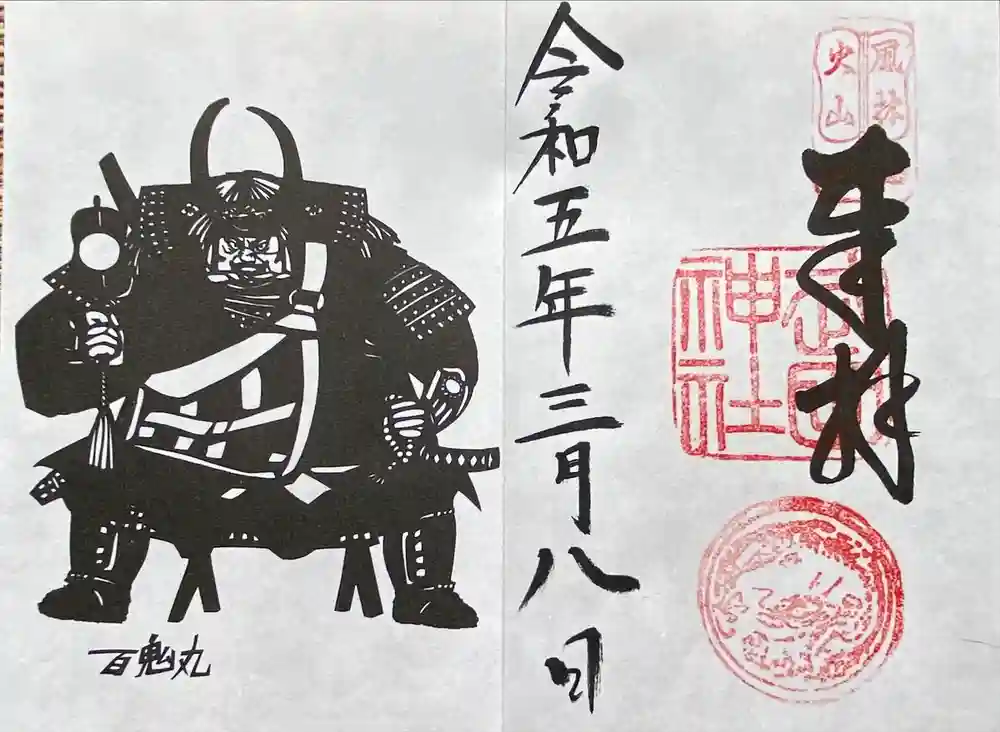 風林
火山
奉拝
武田
神社
令和五年三月八日
百鬼丸